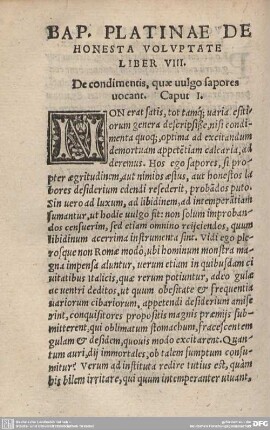 BAP. PLATINAE DE
HONESTA VOLVPTATE
LIBER VIII.
De condimentis, quæ uulgo sapores
uocant. Caput I.
NON erat satis, tot tamq́; uaria esitio
rum genera descripsisse, nisi condi
menta quoq;, optima ad excitandum
demortuam appetitiam calcaria, ad
deremus. Hos ego sapores, si pro
pter ægritudinem, aut nimios æstus, aut honestos la
bores desiderium edendi resederit, probãdos puto.
Sin uero ad luxum, ad libidinem, ad intemperãtiam
sumantur, ut hodie uulgo fit: non solum improban
dos censuerim, sed etiam omnino reijciendos, quum
libidinum acerrima instrumenta sint. Vidi ego ple
rosq́ue non Romæ modò, ubi hominum monstra ma
gna impensa aluntur, uerum etiam in quibusdam ci
uitatibus Italicis, quæ rerum potiuntur, adeo gulæ
ac uentri deditos, ut quum obesitate & frequentia
uariorum cibariorum, appetendi desiderium amise
rint, conquisitores propositis magnis præmijs sub-
mitterent, qui oblimatum stomachum, fracescentem
gulam & desidem, quouis modo excitarent. Quan-
tum auri, dij immortales, ob talem sumptum consu-
mitur? Verum ad instituta redire tutius est, quàm
his bilem irritare, qui quum intemperanter uiuant,